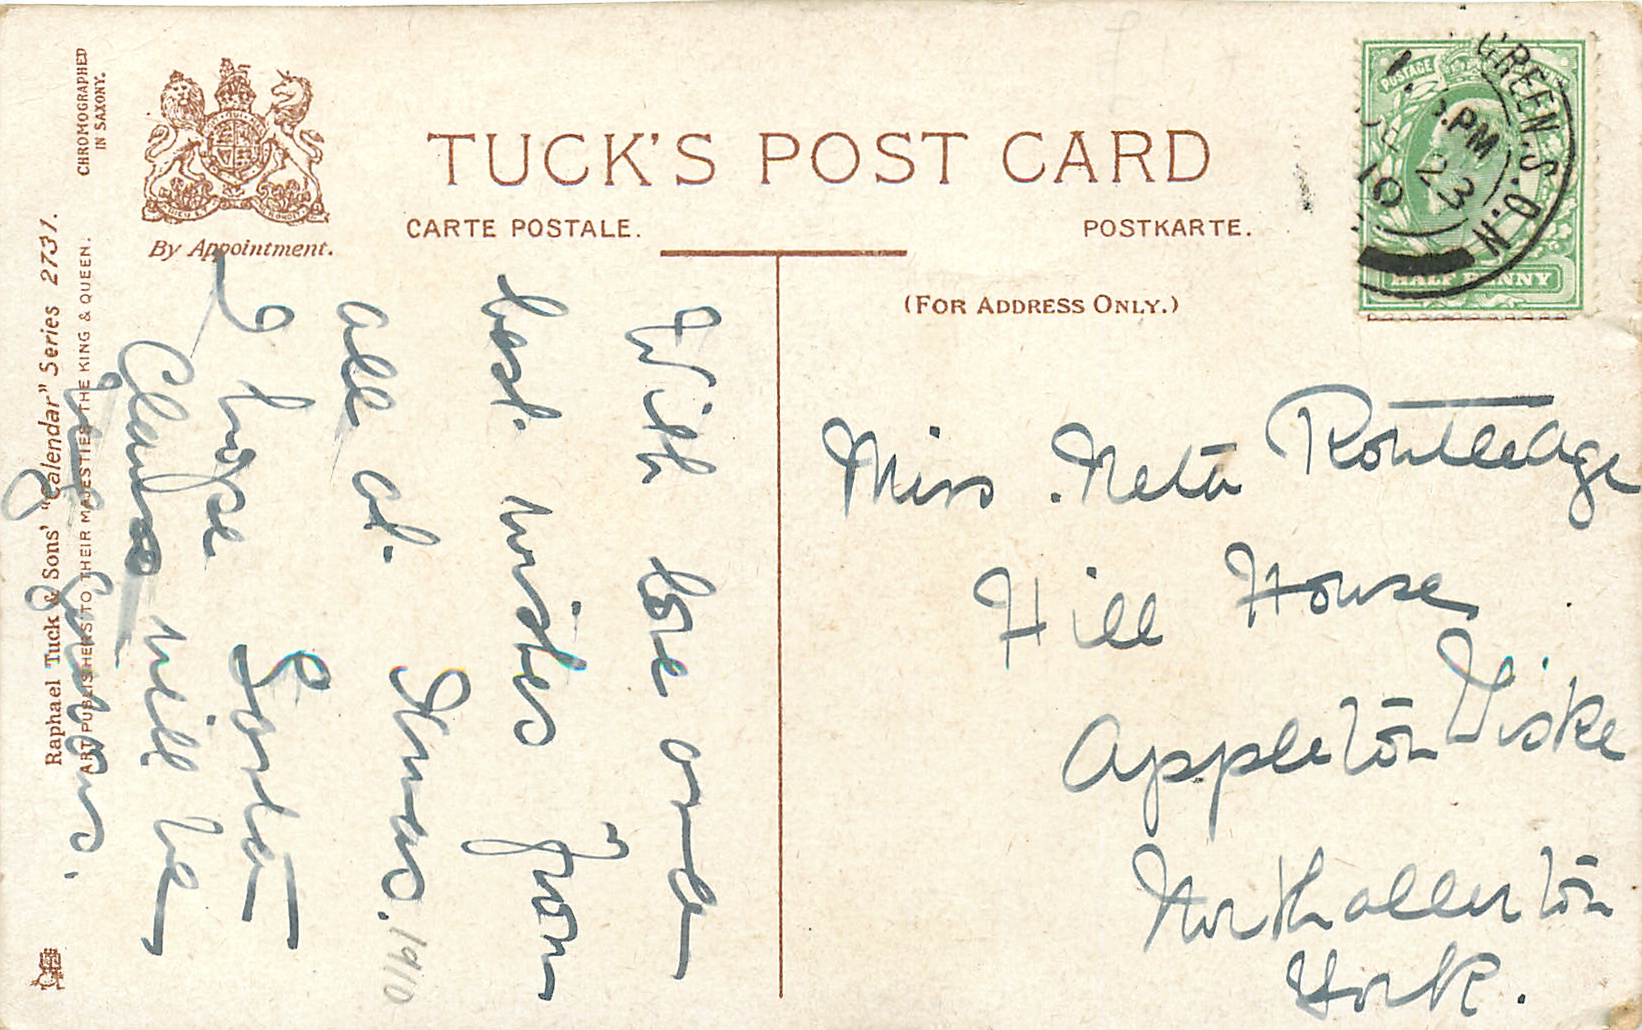 CHROMOGRAPHED
IN SAXONY.
By Appointment.
TUCK'S POST CARD
CARTE POSTALE.
POSTKARTE.
(FOR ADDRESS ONLY.)
POSTAGE
HALF PENNY
GREEN.S.O.N
.PM
23
10
Raphael Tuck & Sons' "Calendar" Series 2731.
ART PUBLISHERS TO THEIR MAJESTIES THE KING & QUEEN.
With love and
best wishes from
all at Xmas. 1910
I hope Santa
Claus will be
Miss Neta Routledge
Hill House
Appleton Wiske
Northallerton
York.